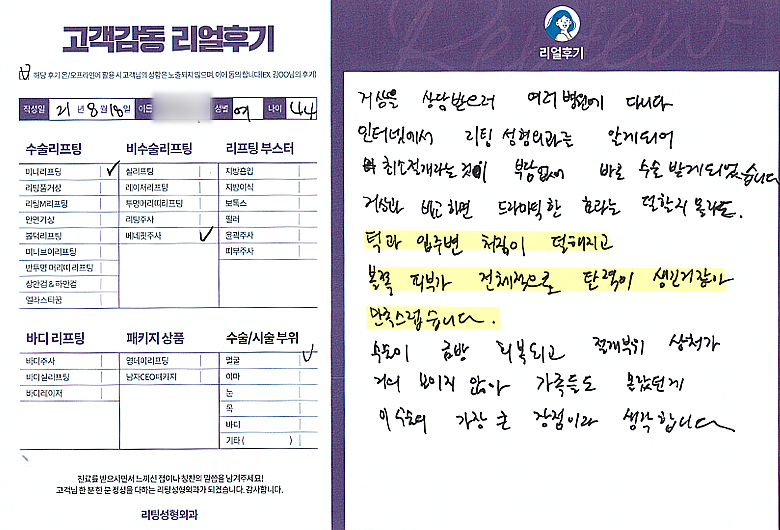 고객감동 리얼후기
해당 후기 온/오프라인에 활용 시 고객님의 성함은 노출되지 않으며, 이에 동의 합니다(EX. 김OO님의 후기)
작성일 21 년 8 월 18 일 이름 성별 여 나이 44
수술리프팅
미니리프팅
리팅풀거상
리팅M리프팅
안면거상
볼턱리프팅
미니브이리프팅
반투명 머리띠 리프팅
상안검 & 하안검
엘라스티꿈
비수술리프팅
실리프팅
레이저리프팅
투명머리띠리프팅
리팅주사
베네핏주사
리프팅 부스터
지방흡입
지방이식
보톡스
필러
윤곽주사
피부주사
바디 리프팅
바디주사
바디실리프팅
바디레이저
패키지 상품
영데이리프팅
남자CEO패키지
수술/시술 부위
얼굴
이마
눈
목
바디
기타 ( )
진료를 받으시면서 느끼신 점이나 칭찬의 말씀을 남겨주세요!
고객님 한 분 한 분 정성을 다하는 리팅성형외과가 되겠습니다. 감사합니다.
리팅성형외과
Review
리얼후기
거상을 상담받으러 여러 병원에 다니다
인터넷에서 리팅 성형외과를 알게되어
최소절개라는 것이 부담없어 바로 수술 받게되었습니다
거상과 비교하면 드라마틱한 효과는 덜할지 몰라도.
턱과 입주변 처짐이 덜해지고
볼쪽 피부가 전체적으로 탄력이 생긴거같아
만족스럽습니다.
속도이 금방 회복되고 절개부위 상처가
거의 보이지 않아 가족들도 몰랐던게
이 수술의 가장 큰 장점이라 생각합니다